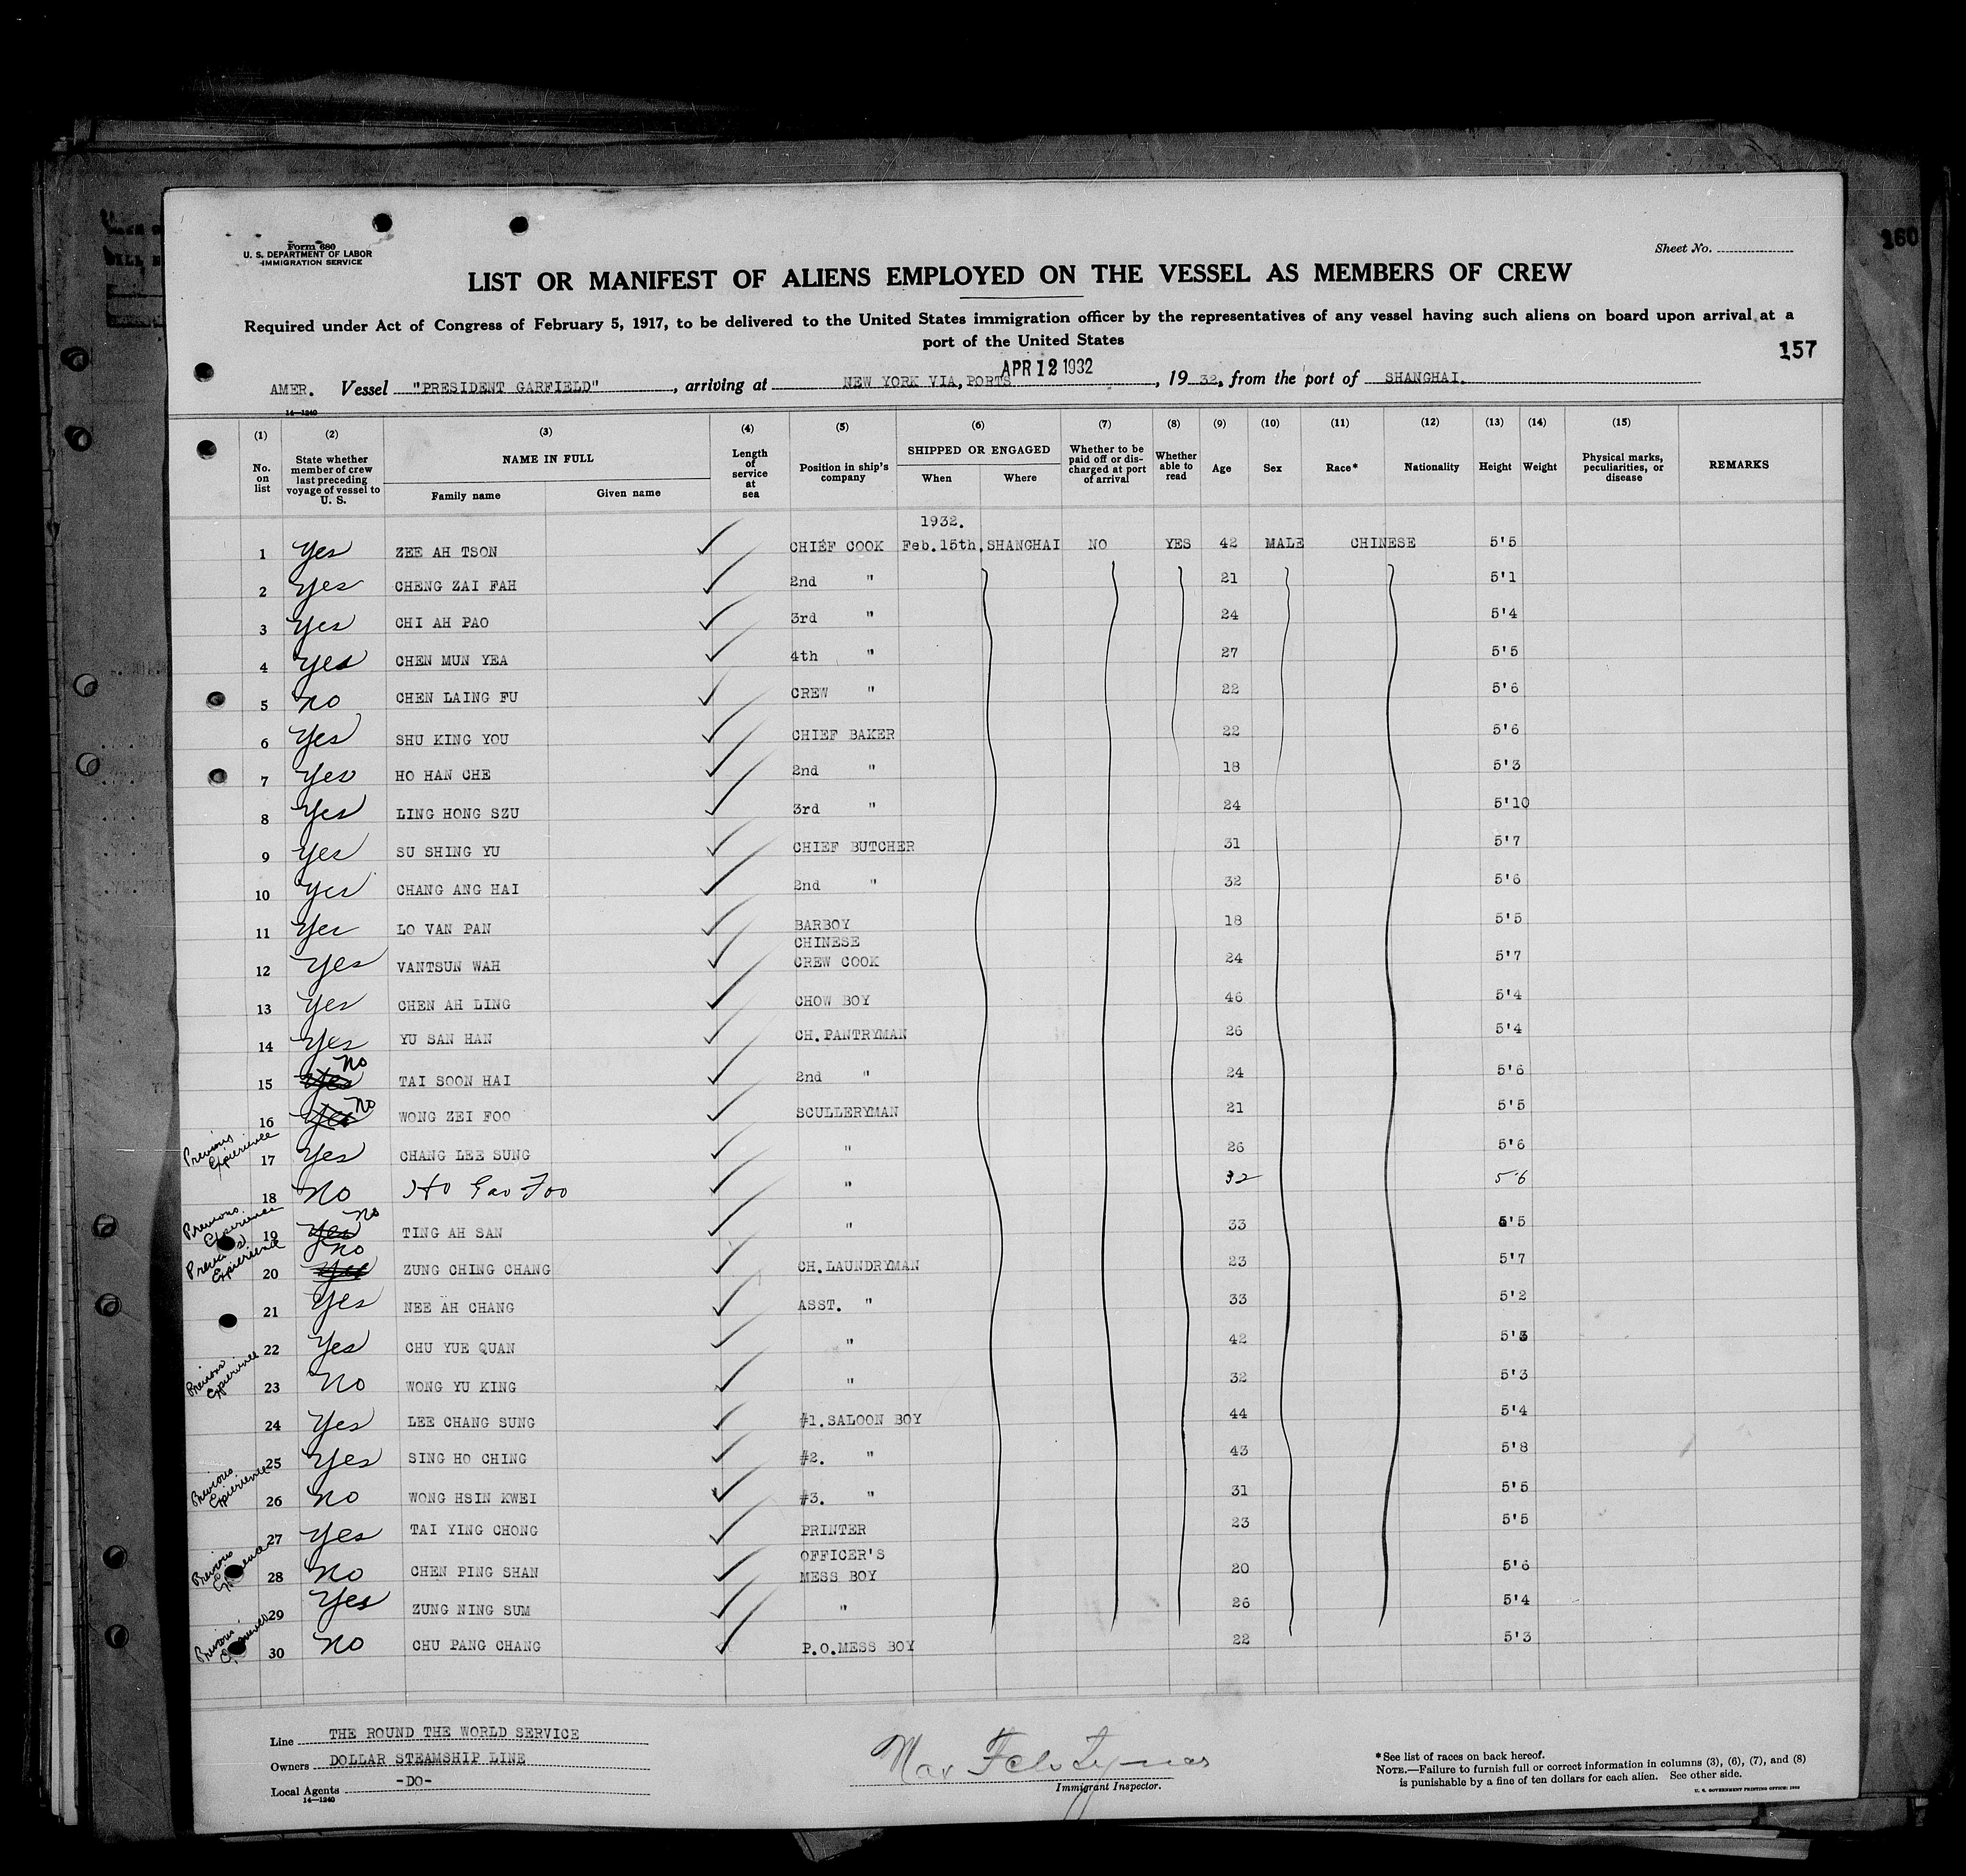 160
Form 680
U. S. DEPARTMENT OF LABOR
IMMIGRATION SERVICE
Sheet No.
LIST OR MANIFEST OF ALIENS EMPLOYED ON THE VESSEL AS MEMBERS OF CREW
Required under Act of Congress of February 5, 1917, to be delivered to the United States immigration officer by the representatives of any vessel having such aliens on board upon arrival at a
port of the United States
157
APR 12 1932
AMER. Vessel "PRESIDENT GARFIELD", arriving at NEW YORK VIA, PORTS, 19 32, from the port of SHANGHAI.
14—1240
(1) (2) (3) (4) (5) (6) (7) (8) (9) (10) (11) (12) (13) (14) (15)
No. on list
State whether member of crew last preceding voyage of vessel to U. S.
NAME IN FULL
Family name Given name
Length of service at sea
Position in ship's company
SHIPPED OR ENGAGED
When Where
Whether to be paid off or discharged at port of arrival
Whether able to read
Age Sex Race* Nationality Height Weight
Physical marks, peculiarities, or disease
REMARKS
1932.
1 Yes ZEE AH TSON CHIEF COOK Feb.15th, SHANGHAI NO YES 42 MALE CHINESE 5'5
2 Yes CHENG ZAI FAH 2nd " 21 5'1
3 Yes CHI AH PAO 3rd " 24 5'4
4 Yes CHEN MUN YEA 4th " 27 5'5
5 No CHEN LAING FU CREW " 22 5'6
6 Yes SHU KING YOU CHIEF BAKER 22 5'6
7 Yes HO HAN CHE 2nd " 18 5'3
8 Yes LING HONG SZU 3rd " 24 5'10
9 Yes SU SHING YU CHIEF BUTCHER 31 5'7
10 Yes CHANG ANG HAI 2nd " 32 5'6
11 Yes LO VAN PAN BARBOY 18 5'5
CHINESE
12 Yes VANTSUN WAH CREW COOK 24 5'7
13 Yes CHEN AH LING CHOW BOY 46 5'4
14 Yes YU SAN HAN CH.PANTRYMAN 26 5'4
15 Yes No TAI SOON HAI 2nd " 24 5'6
16 Yes No WONG ZEI FOO SCULLERYMAN 21 5'5
Previous Experience
17 Yes CHANG LEE SUNG " 26 5'6
18 No Ho Gao Foo " 32 5'6
Previous Experience
19 Yes No TING AH SAN " 33 5'5
Previous Experience
20 Yes No ZUNG CHING CHANG CH.LAUNDRYMAN 23 5'7
21 Yes NEE AH CHANG ASST. " 33 5'2
22 Yes CHU YUE QUAN " 42 5'3
Previous Experience
23 No WONG YU KING " 32 5'3
24 Yes LEE CHANG SUNG #1.SALOON BOY 44 5'4
25 Yes SING HO CHING #2. " 43 5'8
Previous Experience
26 No WONG HSIN KWEI #3. " 31 5'5
27 Yes TAI YING CHONG PRINTER 23 5'5
Previous
OFFICER'S
28 No CHEN PING SHAN MESS BOY 20 5'6
29 Yes ZUNG NING SUM " 26 5'4
Previous
30 No CHU PANG CHANG P.O.MESS BOY 22 5'3
Line THE ROUND THE WORLD SERVICE
Owners DOLLAR STEAMSHIP LINE
Local Agents -DO-
14—1240
Max
Immigrant Inspector.
*See list of races on back hereof.
NOTE.—Failure to furnish full or correct information in columns (3), (6), (7), and (8)
is punishable by a fine of ten dollars for each alien. See other side.
U. S. GOVERNMENT PRINTING OFFICE: